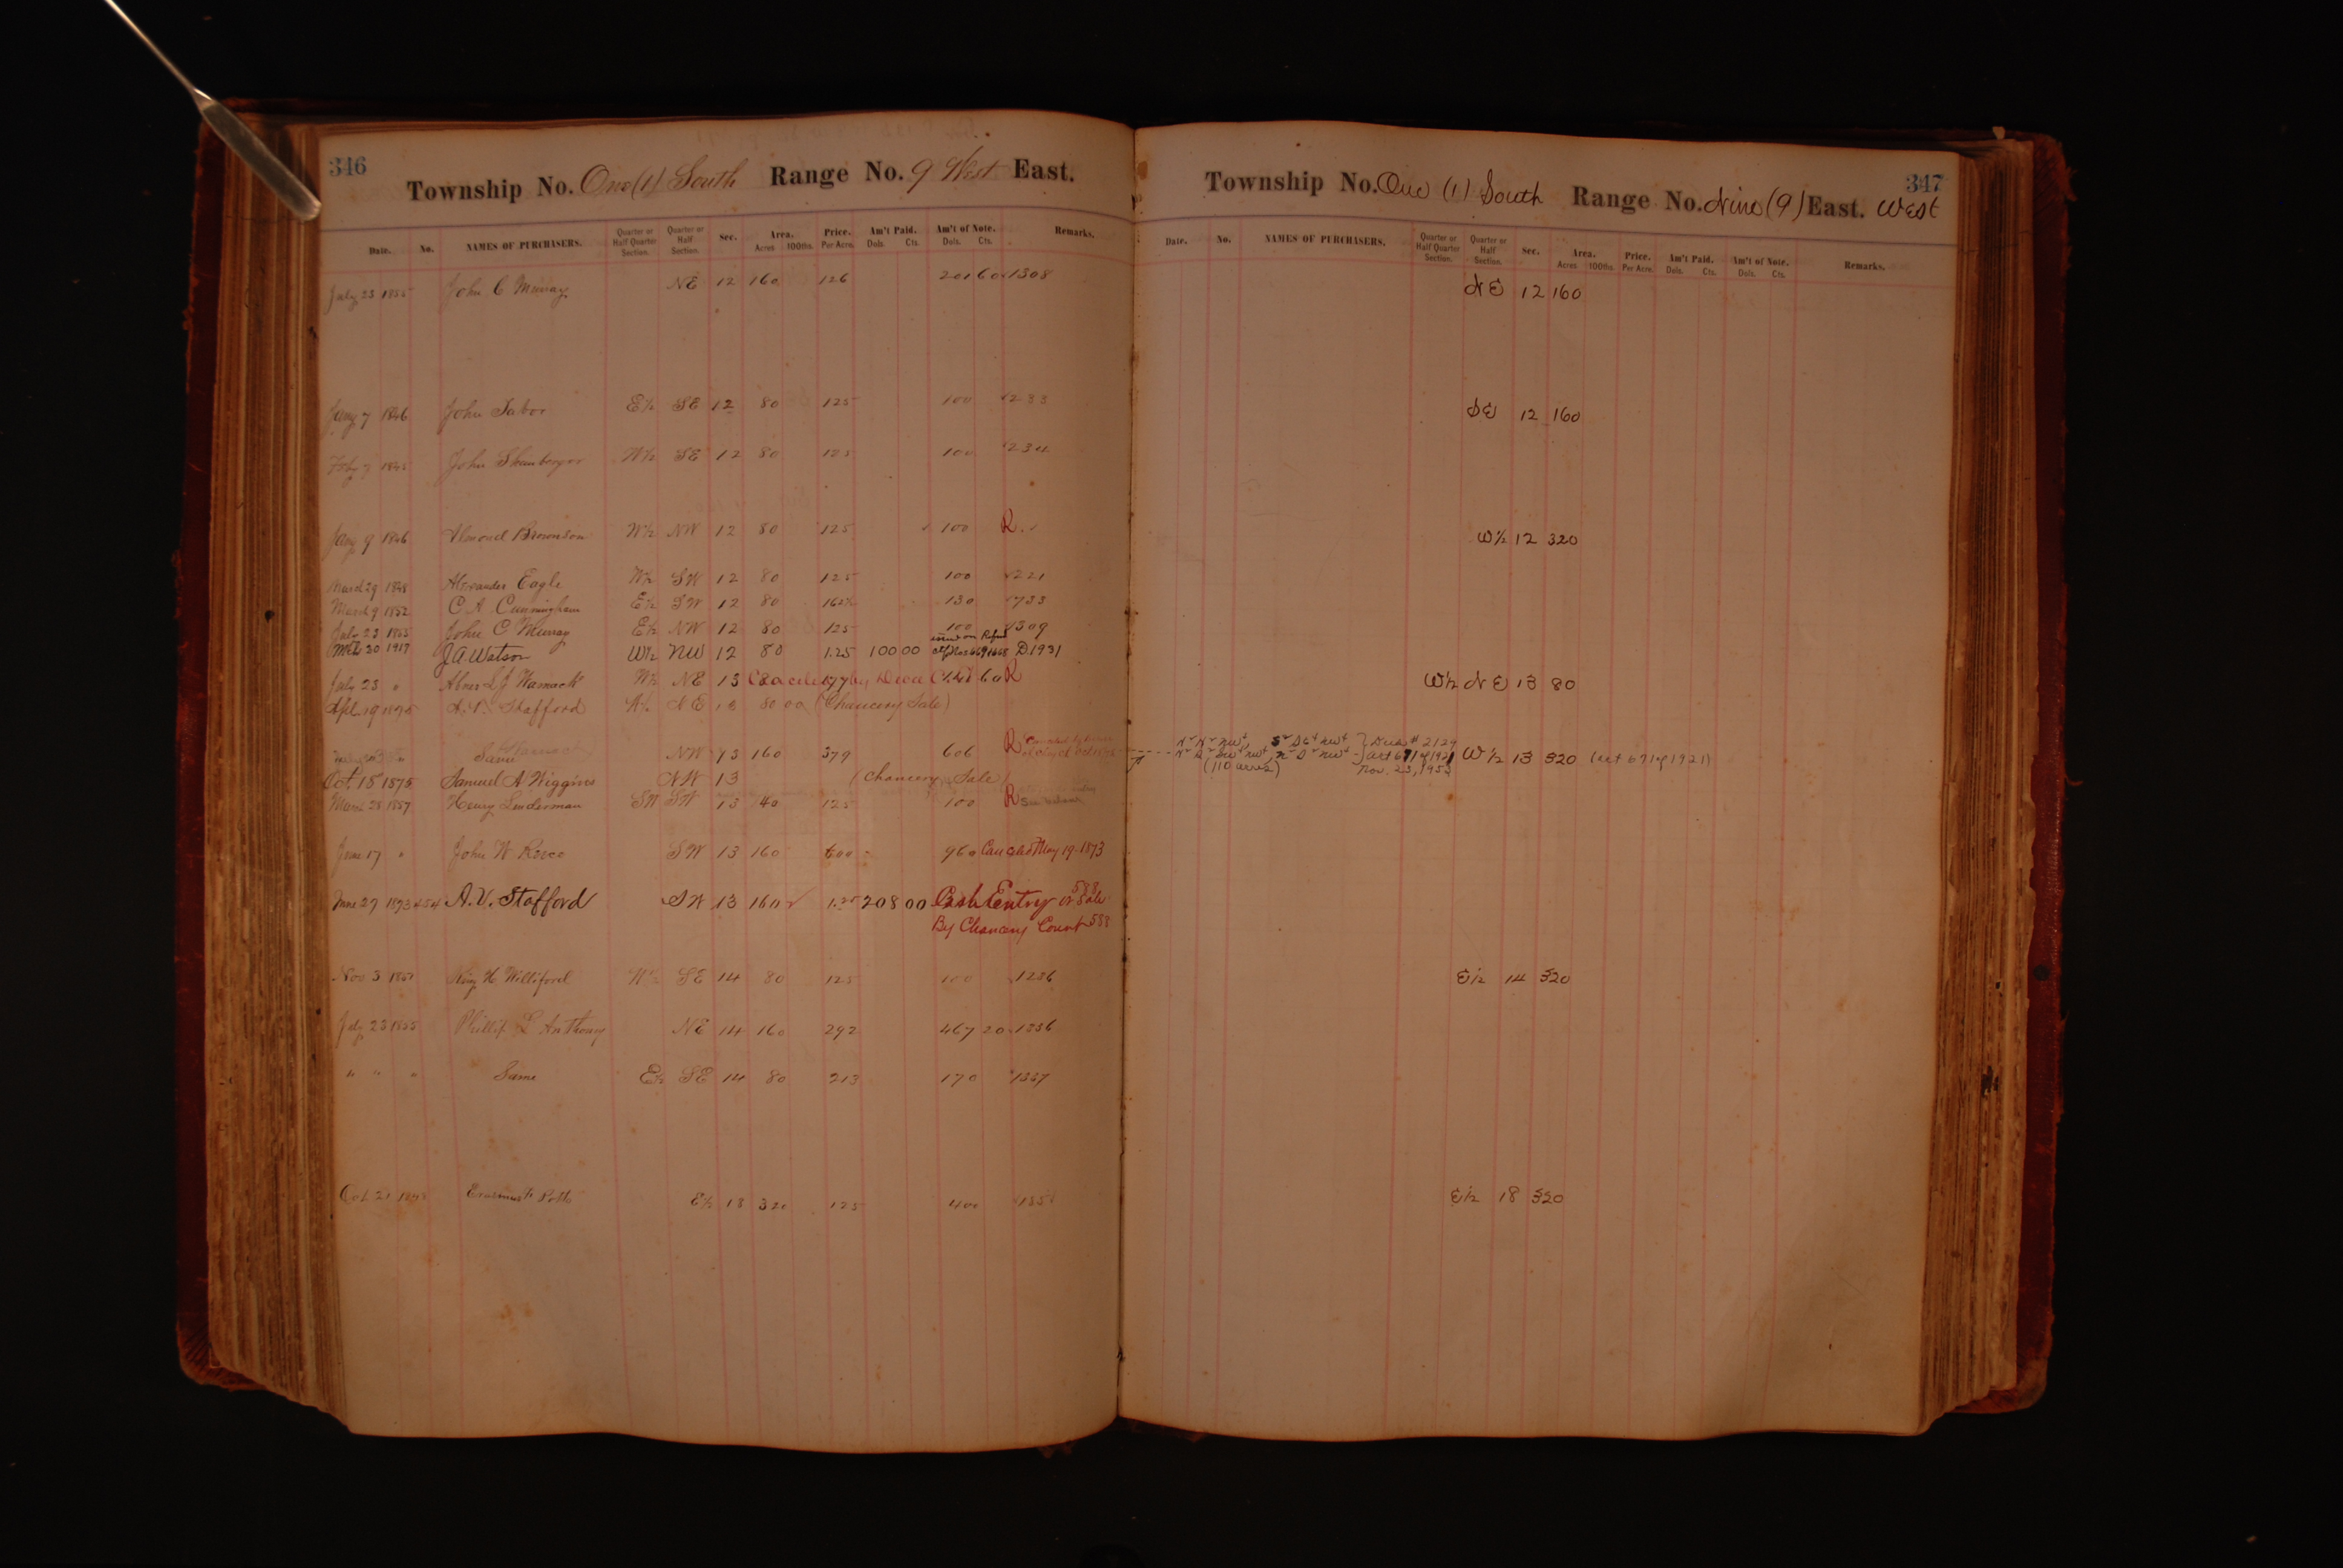 346
Township No. One (1) South Range No. 9 West East.
Date. No. NAMES OF PURCHASERS. Quarter or Half Quarter Section. Quarter or Half Section. Sec. Area. Acres 100ths. Price. Per Acre. Am't Paid. Dols. Cts. Am't of Note. Dols. Cts. Remarks.
July 23 1855 John C Murray NE 12 160 126 201 60 1308
Jany 7 1846 John Tabor E½ SE 12 80 125 100 233
Feby 7 1845 John Shanberger W½ SE 12 80 125 100 234
Jany 9 1846 Almond Brownson W½ NW 12 80 125 100 R.
March 29 1848 Alexander Eagle W½ SW 12 80 125 100 221
March 9 1852 C A Cunningham E½ SW 12 80 162½ 130 733
July 23 1855 John C Murray E½ NW 12 80 125 100 1309
Mch 30 1917 J.A. Watson W½ NW 12 80 1.25 100 00 D.1931
July 23 " Abner L J Wamack W½ NE 13 80 177 60 R
Apl. 19 1895 A.V. Stafford W½ NE 13 80 00 (Chancery Sale)
Same NW 13 160 379 606 R
Oct. 15" 1875 Samuel A Wiggins NW 13 (Chancery Sale)
March 28 1857 Henry Linderman SW SW 13 40 125 100 R
June 17 " John W Rivco SW 13 160 600 960 Canceled May 19-1873
June 27 1893 454 A.V. Stafford SW 13 160 1.30 208 00 Cash Entry or Sale 588
By Chancery Court 588
Nov 3 King H Williford W½ SE 14 80 125 100 1236
July 23 1855 Phillip L Anthony NE 14 160 292 467 20 1336
" " " Same E½ SE 14 80 213 170 1337
Oct 21 E½ 18 320 125 400
347
Township No. One (1) South Range No. Nine (9) East. West
Date. No. NAMES OF PURCHASERS. Quarter or Half Quarter Section. Quarter or Half Section. Sec. Area. Acres 100ths. Price. Per Acre. Am't Paid. Dols. Cts. Am't of Note. Dols. Cts. Remarks.
NE 12 160
SE 12 160
W½ 12 320
W½ NE 13 80
Deed # 2129
Act 671 of 1921 W½ 13 320 (act 671 of 1921)
(110 acres) Nov. 23, 1953
E½ 14 320
E½ 18 320